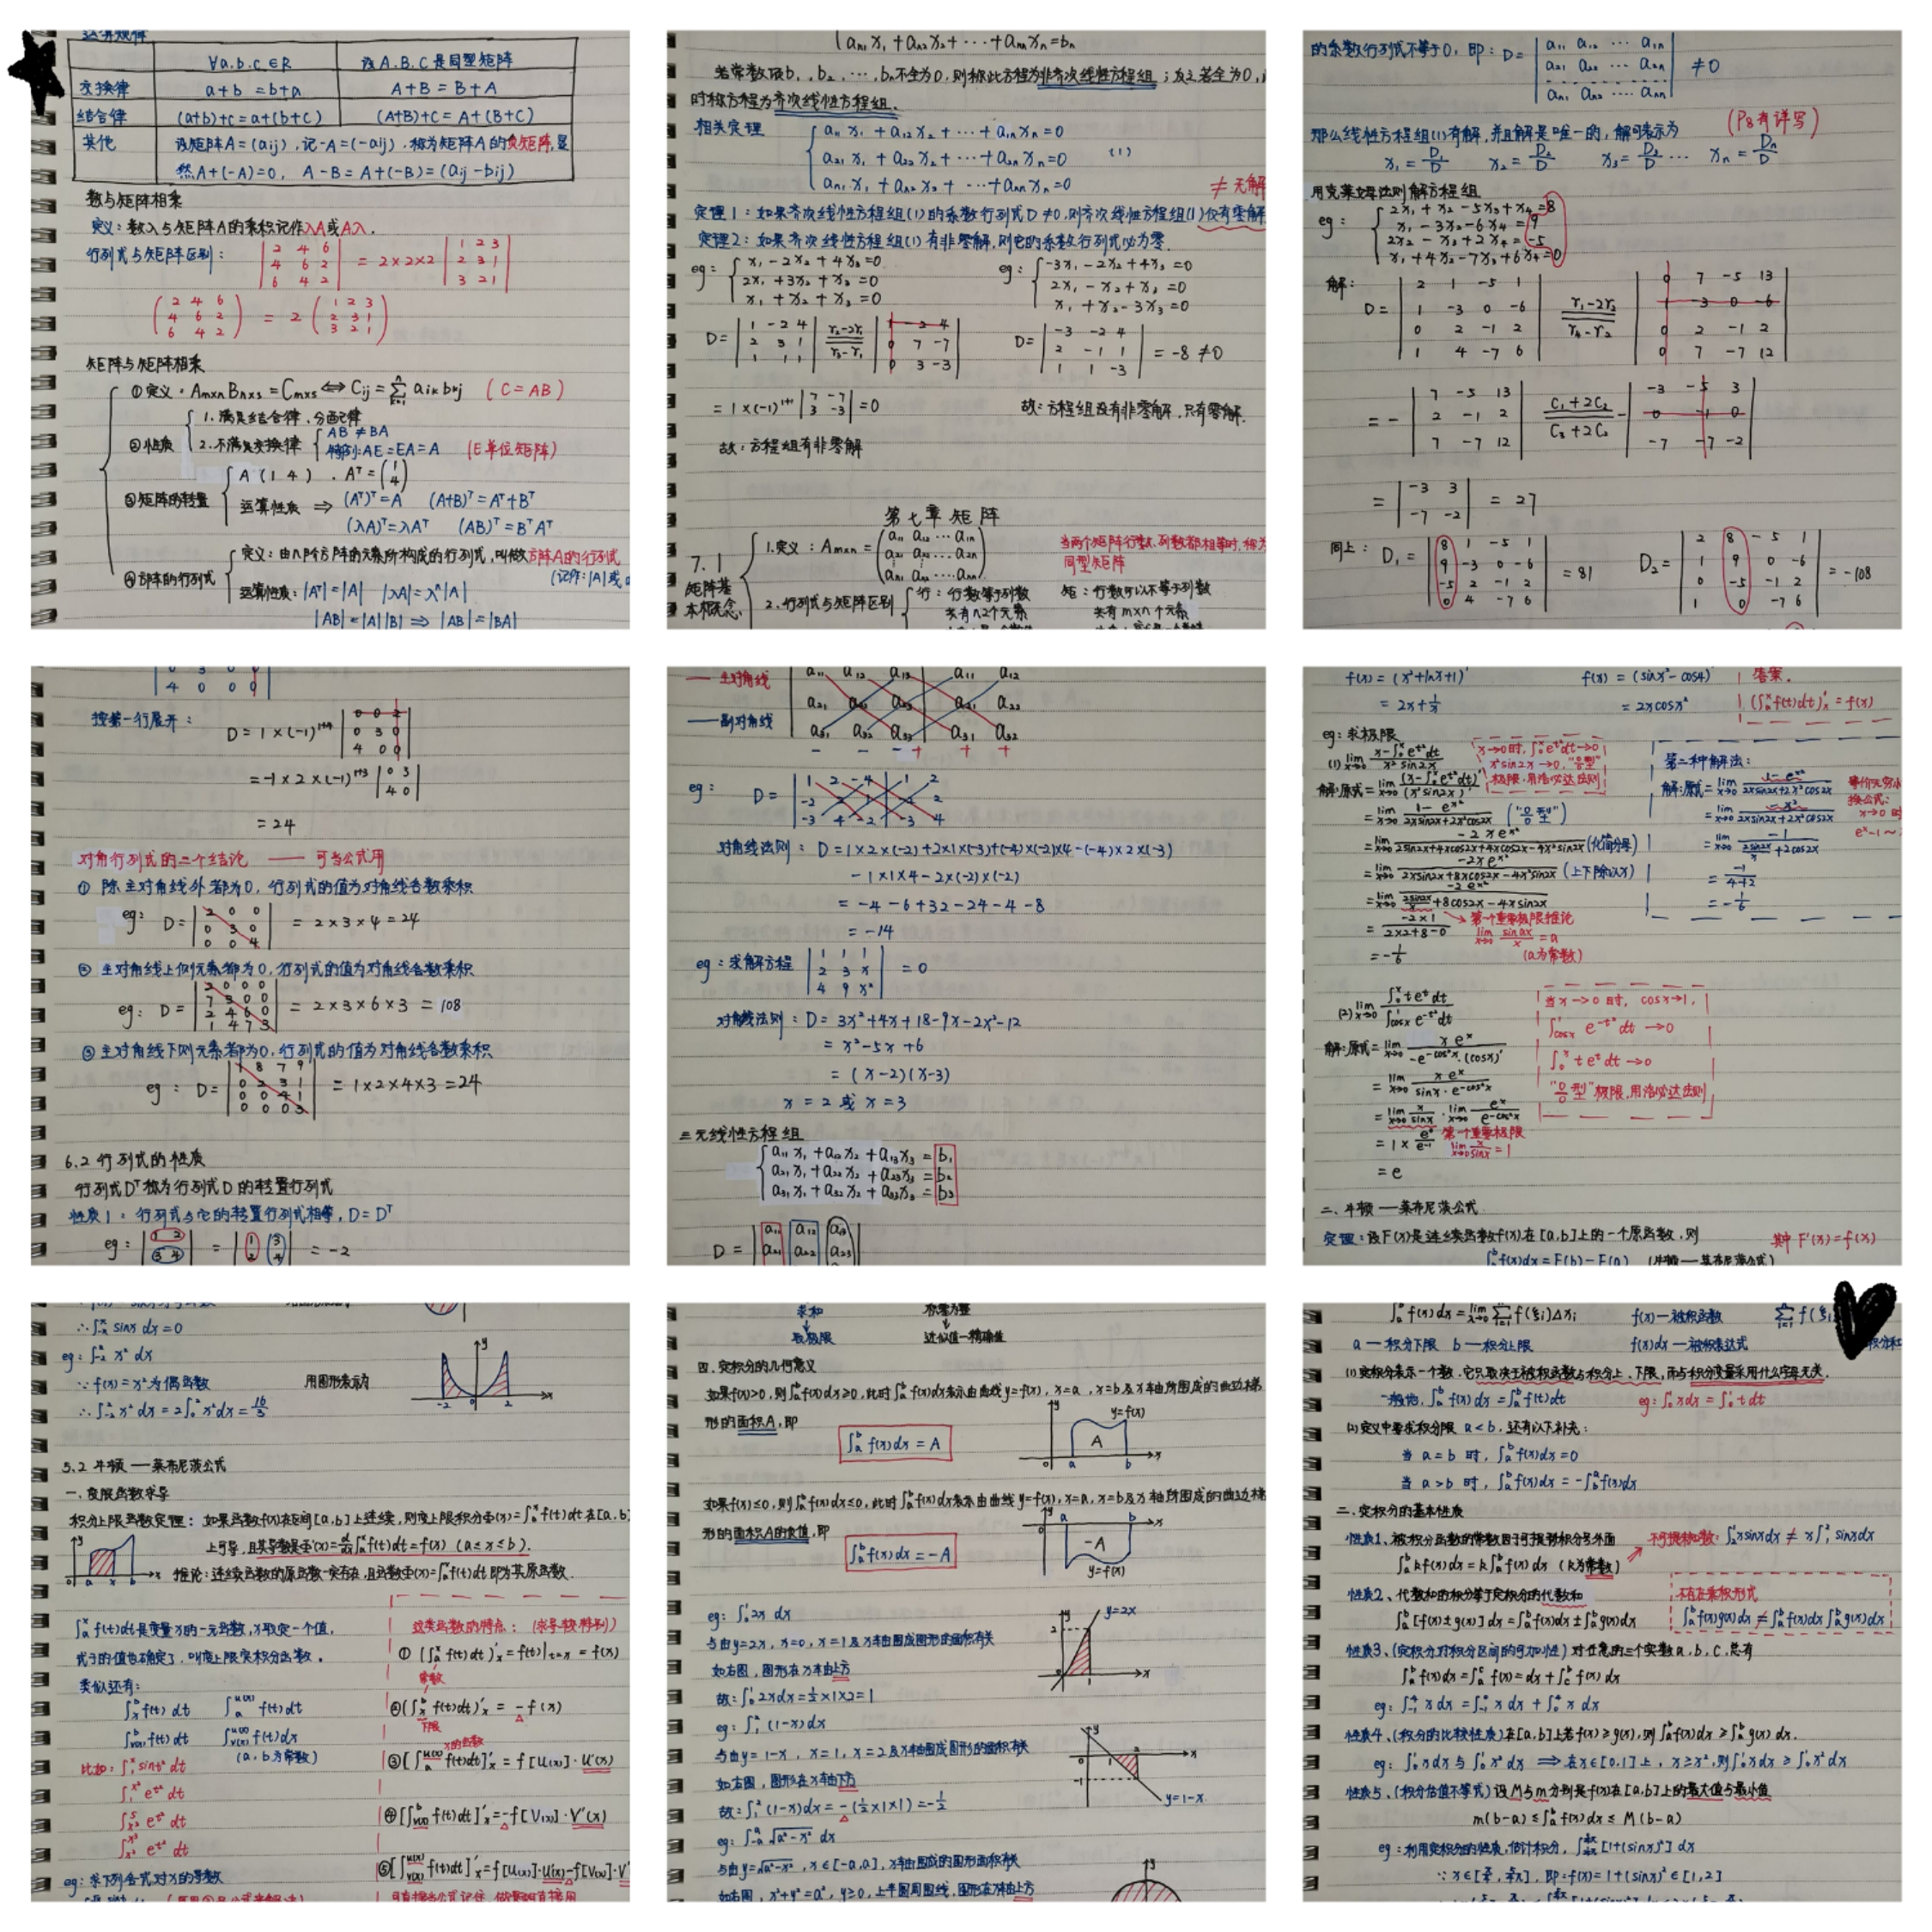 运算规律
∀a.b.c∈R  设A.B.C是同型矩阵
交换律  a+b=b+a  A+B=B+A
结合律  (a+b)+c=a+(b+c)  (A+B)+C=A+(B+C)
其他  设矩阵A=(aij),记-A=(-aij).称为矩阵A的负矩阵,显
然A+(-A)=0, A-B=A+(-B)=(aij-bij)
数与矩阵相乘
定义:数λ与矩阵A的乘积记作λA或Aλ.
行列式与矩阵区别: |2 4 6; 4 6 2; 6 4 2| = 2×2×2 |1 2 3; 2 3 1; 3 2 1|
(2 4 6; 4 6 2; 6 4 2) = 2 (1 2 3; 2 3 1; 3 2 1)
矩阵与矩阵相乘
①定义:Am×n Bn×s=Cm×s⇔Cij=∑aik bkj (C=AB)
②性质 1.满足结合律,分配律
2.不满足交换律 AB≠BA
特别:AE=EA=A (E单位矩阵)
③矩阵的转置 A (1 4). Aᵀ=(1; 4)
运算性质⇒(Aᵀ)ᵀ=A (A+B)ᵀ=Aᵀ+Bᵀ
(λA)ᵀ=λAᵀ (AB)ᵀ=BᵀAᵀ
④方阵的行列式 定义:由n阶方阵的元素所构成的行列式,叫做方阵A的行列式
(记作:|A|或
运算性质:|Aᵀ|=|A| |λA|=λⁿ|A|
|AB|=|A||B|⇒|AB|=|BA|
an1x1+an2x2+⋯+annxn=bn
若常数项b1,b2,⋯,bn不全为0,则称此方程为非齐次线性方程组;反之若全为0,
时称方程为齐次线性方程组.
相关定理 a11x1+a12x2+⋯+a1nxn=0
a21x1+a22x2+⋯+a2nxn=0 (1)
an1x1+an2x2+⋯+annxn=0
≠无解
定理1:如果齐次线性方程组(1)的系数行列式D≠0,则齐次线性方程组(1)仅有零解
定理2:如果齐次线性方程组(1)有非零解,则它的系数行列式必为零.
eg: x1-2x2+4x3=0  eg: -3x1-2x2+4x3=0
2x1+3x2+x3=0  2x1-x2+x3=0
x1+x2+x3=0  x1+x2-3x3=0
D=|1 -2 4; 2 3 1; 1 1 1| r2-2r1 r3-r1 |1 -2 4; 0 7 -7; 0 3 -3|  D=|-3 -2 4; 2 -1 1; 1 1 -3|=-8≠0
=1×(-1)¹⁺¹|7 -7; 3 -3|=0  故:方程组没有非零解,只有零解.
故:方程组有非零解
第七章 矩阵
7.1 矩阵基本概念
1.定义:Am×n=(a11 a12 ⋯ a1n; a21 a22 ⋯ a2n; an1 an2 ⋯ ann)
当两个矩阵行数.列数都相等时,称为
同型矩阵
2.行列式与矩阵区别 行:行数等于列数  矩:行数可以不等于列数
共有n2个元素  共有m×n个元素
的系数行列式不等于0,即:D=|a11 a12 ⋯ a1n; a21 a22 ⋯ a2n; an1 an2 ⋯ ann|≠0
那么线性方程组(1)有解,并且解是唯一的,解可表示为 (P8有详写)
x1=D1/D x2=D2/D x3=D3/D⋯ xn=Dn/D
用克莱姆法则解方程组
eg: 2x1+x2-5x3+x4=8
x1-3x2-6x4=9
2x2-x3+2x4=-5
x1+4x2-7x3+6x4=0
解:
D=|2 1 -5 1; 1 -3 0 -6; 0 2 -1 2; 1 4 -7 6| r1-2r2 r4-r2 |0 7 -5 13; 1 -3 0 -6; 0 2 -1 2; 0 7 -7 12|
=-|7 -5 13; 2 -1 2; 7 -7 12| C1+2C2 C3+2C2 -|-3 -5 3; 0 -1 0; -7 -7 -2|
=|-3 3; -7 -2|=27
同上:D1=|8 1 -5 1; 9 -3 0 -6; -5 2 -1 2; 0 4 -7 6|=81 D2=|2 8 -5 1; 1 9 0 -6; 0 -5 -1 2; 1 0 -7 6|=-108
4 0 0 0
按第一行展开:
D=1×(-1)¹⁺⁴|0 0 2; 0 3 0; 4 0 0|
=-1×2×(-1)¹⁺³|0 3; 4 0|
=24
对角行列式的三个结论 ——可当公式用
① 除主对角线外都为0,行列式的值为对角线各数乘积
eg: D=|2 0 0; 0 3 0; 0 0 4|=2×3×4=24
② 主对角线上侧元素都为0,行列式的值为对角线各数乘积
eg: D=|2 0 0 0; 7 3 0 0; 2 4 6 0; 1 4 7 3|=2×3×6×3=108
③主对角线下侧元素都为0,行列式的值为对角线各数乘积
eg: D=|1 8 7 9; 0 2 3 1; 0 0 4 1; 0 0 0 3|=1×2×4×3=24
6.2 行列式的性质
行列式Dᵀ称为行列式D的转置行列式
性质1:行列式与它的转置行列式相等,D=Dᵀ
eg: |1 2; 3 4|=|1 3; 2 4|=-2
——主对角线 a11 a12 a13 a11 a12
a21 a22 a23 a21 a22
——副对角线 a31 a32 a33 a31 a32
- - - + + +
eg: D=|1 2 -4; -2 2 1; -3 4 -2| 1 2; -2 2; -3 4
对角线法则:D=1×2×(-2)+2×1×(-3)+(-4)×(-2)×4-(-4)×2×(-3)
-1×1×4-2×(-2)×(-2)
=-4-6+32-24-4-8
=-14
eg:求解方程 |1 1 1; 2 3 x; 4 9 x²|=0
对角线法则:D=3x²+4x+18-9x-2x²-12
=x²-5x+6
=(x-2)(x-3)
x=2或x=3
三元线性方程组
a11x1+a12x2+a13x3=b1
a21x1+a22x2+a23x3=b2
a31x1+a32x2+a33x3=b3
D=|a11 a12 a13; a21 a22 a23
f(x)=(x²+lnx+1)'  f(x)=(sinx²-cos4)'  答案.
=2x+1/x  =2xcosx²  (∫ₐˣf(t)dt)'ₓ=f(x)
eg:求极限
(1) lim x→0 (x-∫₀ˣe^t²dt)/(x²sin2x)
x→0时,∫₀ˣe^t²dt→0
x²sin2x→0,"0/0型"
极限.用洛必达法则
解:原式=lim x→0 (x-∫₀ˣe^t²dt)'/(x²sin2x)'
=lim x→0 (1-e^x²)/(2xsin2x+2x²cos2x) ("0/0型")
=lim x→0 -2xe^x²/(2sin2x+4xcos2x+4xcos2x-4x²sin2x) (化简分母)
=lim x→0 -2xe^x²/(2sin2x+8xcos2x-4x²sin2x) (上下除以x)
=lim x→0 -2e^x²/(2sin2x/x+8cos2x-4xsin2x)
=-2×1/(2×2+8-0) 第一个重要极限推论
lim x→0 sinax/x=a
=-1/6 (a为常数)
第二种解法:
解:原式=lim x→0 (1-e^x²)/(2xsin2x+2x²cos2x)
=lim x→0 -x²/(2xsin2x+2x²cos2x)
=lim x→0 -1/(2sin2x/x+2cos2x)
=-1/(4+2)
=-1/6
等价无穷小
换公式:
x→0时
e^x-1~
(2) lim x→0 ∫₀ˣte^t dt/∫cosx¹ e^-t²dt
当x→0时, cosx→1,
∫cosx¹ e^-t²dt→0
∫₀ˣte^t dt→0
"0/0型"极限,用洛必达法则
解:原式=lim x→0 xe^x/(-e^-cos²x·(cosx)')
=lim x→0 xe^x/(sinx·e^-cos²x)
=lim x→0 x/sinx·lim x→0 e^x/e^-cos²x
=1×e⁰/e⁻¹ 第一个重要极限
lim x→0 x/sinx=1
=e
二、牛顿—莱布尼茨公式
定理:设F(x)是连续函数f(x)在[a,b]上的一个原函数,则 其中F'(x)=f(x)
∫ₐᵇf(x)dx=F(b)-F(a) (牛顿—莱布尼茨公式)
∴∫sinx dx=0
eg:∫₋₂²x²dx
∵f(x)=x²为偶函数 用图形表示为
∴∫₋₂²x²dx=2∫₀²x²dx=16/3
5.2 牛顿—莱布尼茨公式
一.变限函数求导
积分上限函数定理:如果函数f(x)在区间[a,b]上连续,则变上限积分Φ(x)=∫ₐˣf(t)dt在[a,b]
上可导,且其导数是Φ'(x)=d/dx∫ₐˣf(t)dt=f(x) (a≤x≤b).
推论:连续函数的原函数一定存在,且函数Φ(x)=∫ₐˣf(t)dt即为其原函数.
∫ₐˣf(t)dt是变量x的一元函数,x取定一个值,
式子的值也确定了,叫变上限定积分函数.
类似还有:
∫ₓᵇf(t)dt ∫ₐ^u(x) f(t)dt
∫v(x)ᵇ f(t)dt ∫v(x)^u(x) f(t)dx
(a,b为常数)
比如:∫₁ˣsint²dt
∫₁^x² e^t²dt
∫ₓ²⁵ e^t²dt
∫ₓ²^x³ e^t²dt
eg:求下列各式对x的导数
这类函数的特点:(求导较特别)
①(∫ₐˣf(t)dt)'ₓ=f(t)|t=x=f(x)
常数
②(∫ₓᵇf(t)dt)'ₓ=-f(x)
下限 x的函数
③[∫ₐ^u(x) f(t)dt]'ₓ=f[u(x)]·u'(x)
④[∫v(x)ᵇ f(t)dt]'ₓ=-f[v(x)]·v'(x)
⑤[∫v(x)^u(x) f(t)dt]'ₓ=f[u(x)]·u'(x)-f[v(x)]·v'
求和 积零为整
↓ ↓
取极限 近似值—精确值
四.定积分的几何意义
如果f(x)≥0,则∫ₐᵇf(x)dx≥0,此时∫ₐᵇf(x)dx表示由曲线y=f(x),x=a,x=b及x轴所围成的曲边梯
形的面积A,即
∫ₐᵇf(x)dx=A
y=f(x) A o a b x y
如果f(x)≤0,则∫ₐᵇf(x)dx≤0,此时∫ₐᵇf(x)dx表示由曲线y=f(x),x=a,x=b及x轴所围成的曲边梯
形的面积A的负值,即
∫ₐᵇf(x)dx=-A
o a b x -A y=f(x)
eg:∫₀¹2x dx
与由y=2x,x=0,x=1及x轴围成图形的面积有关
如右图,图形在x轴上方
故:∫₀¹2xdx=½×1×2=1
y y=2x 2 1 x
eg:∫₁²(1-x)dx
与由y=1-x,x=1,x=2及x轴围成图形的面积有关
如右图,图形在x轴下方
故:∫₁²(1-x)dx=-(½×1×1)=-½
y 1 2 x -1 y=1-x
eg:∫₋ₐᵃ√(a²-x²)dx
与由y=√(a²-x²),x∈[-a,a],x轴围成的图形面积有关
如右图,x²+y²=a²,y≥0,上半圆周围线,图形在x轴上方
∫ₐᵇf(x)dx=lim λ→0 ∑f(ξi)Δxi f(x)—被积函数 ∑f(ξi
a—积分下限 b—积分上限 f(x)dx—被积表达式 积分和
(1)定积分表示一个数,它只取决于被积函数与积分上、下限,而与积分变量采用什么字母无关.
一般地,∫ₐᵇf(x)dx=∫ₐᵇf(t)dt eg:∫₀¹xdx=∫₀¹tdt
(2)定义中要求积分限a<b,还有以下补充:
当a=b时,∫ₐᵇf(x)dx=0
当a>b时,∫ₐᵇf(x)dx=-∫ᵇₐf(x)dx
二.定积分的基本性质
性质1、被积分函数的常数因子可提到积分号外面
∫ₐᵇkf(x)dx=k∫ₐᵇf(x)dx (k为常数)
不可提和函数:∫₁²xsinxdx≠x∫₁²sinxdx
性质2、代数和的积分等于定积分的代数和
∫ₐᵇ[f(x)±g(x)]dx=∫ₐᵇf(x)dx±∫ₐᵇg(x)dx
不存在乘积形式
∫ₐᵇf(x)g(x)dx≠∫ₐᵇf(x)dx∫ₐᵇg(x)dx
性质3、(定积分对积分区间的可加性)对任意的三个实数a,b,c,总有
∫ₐᵇf(x)dx=∫ₐᶜf(x)=dx+∫꜀ᵇf(x)dx
eg:∫₋₁¹xdx=∫₋₁⁰xdx+∫₀¹xdx
性质4、(积分的比较性质)在[a,b]上若f(x)≥g(x),则∫ₐᵇf(x)dx≥∫ₐᵇg(x)dx.
eg:∫₀¹xdx与∫₀¹x²dx⇒在x∈[0,1]上,x≥x²,则∫₀¹xdx≥∫₀¹x²dx
性质5、(积分估值不等式)设M与m分别是f(x)在[a,b]上的最大值与最小值
m(b-a)≤∫ₐᵇf(x)dx≤M(b-a)
eg:利用定积分的性质,估计积分,∫[1+(sinx)²]dx
即:f(x)=1+(sinx)²∈[1,2]